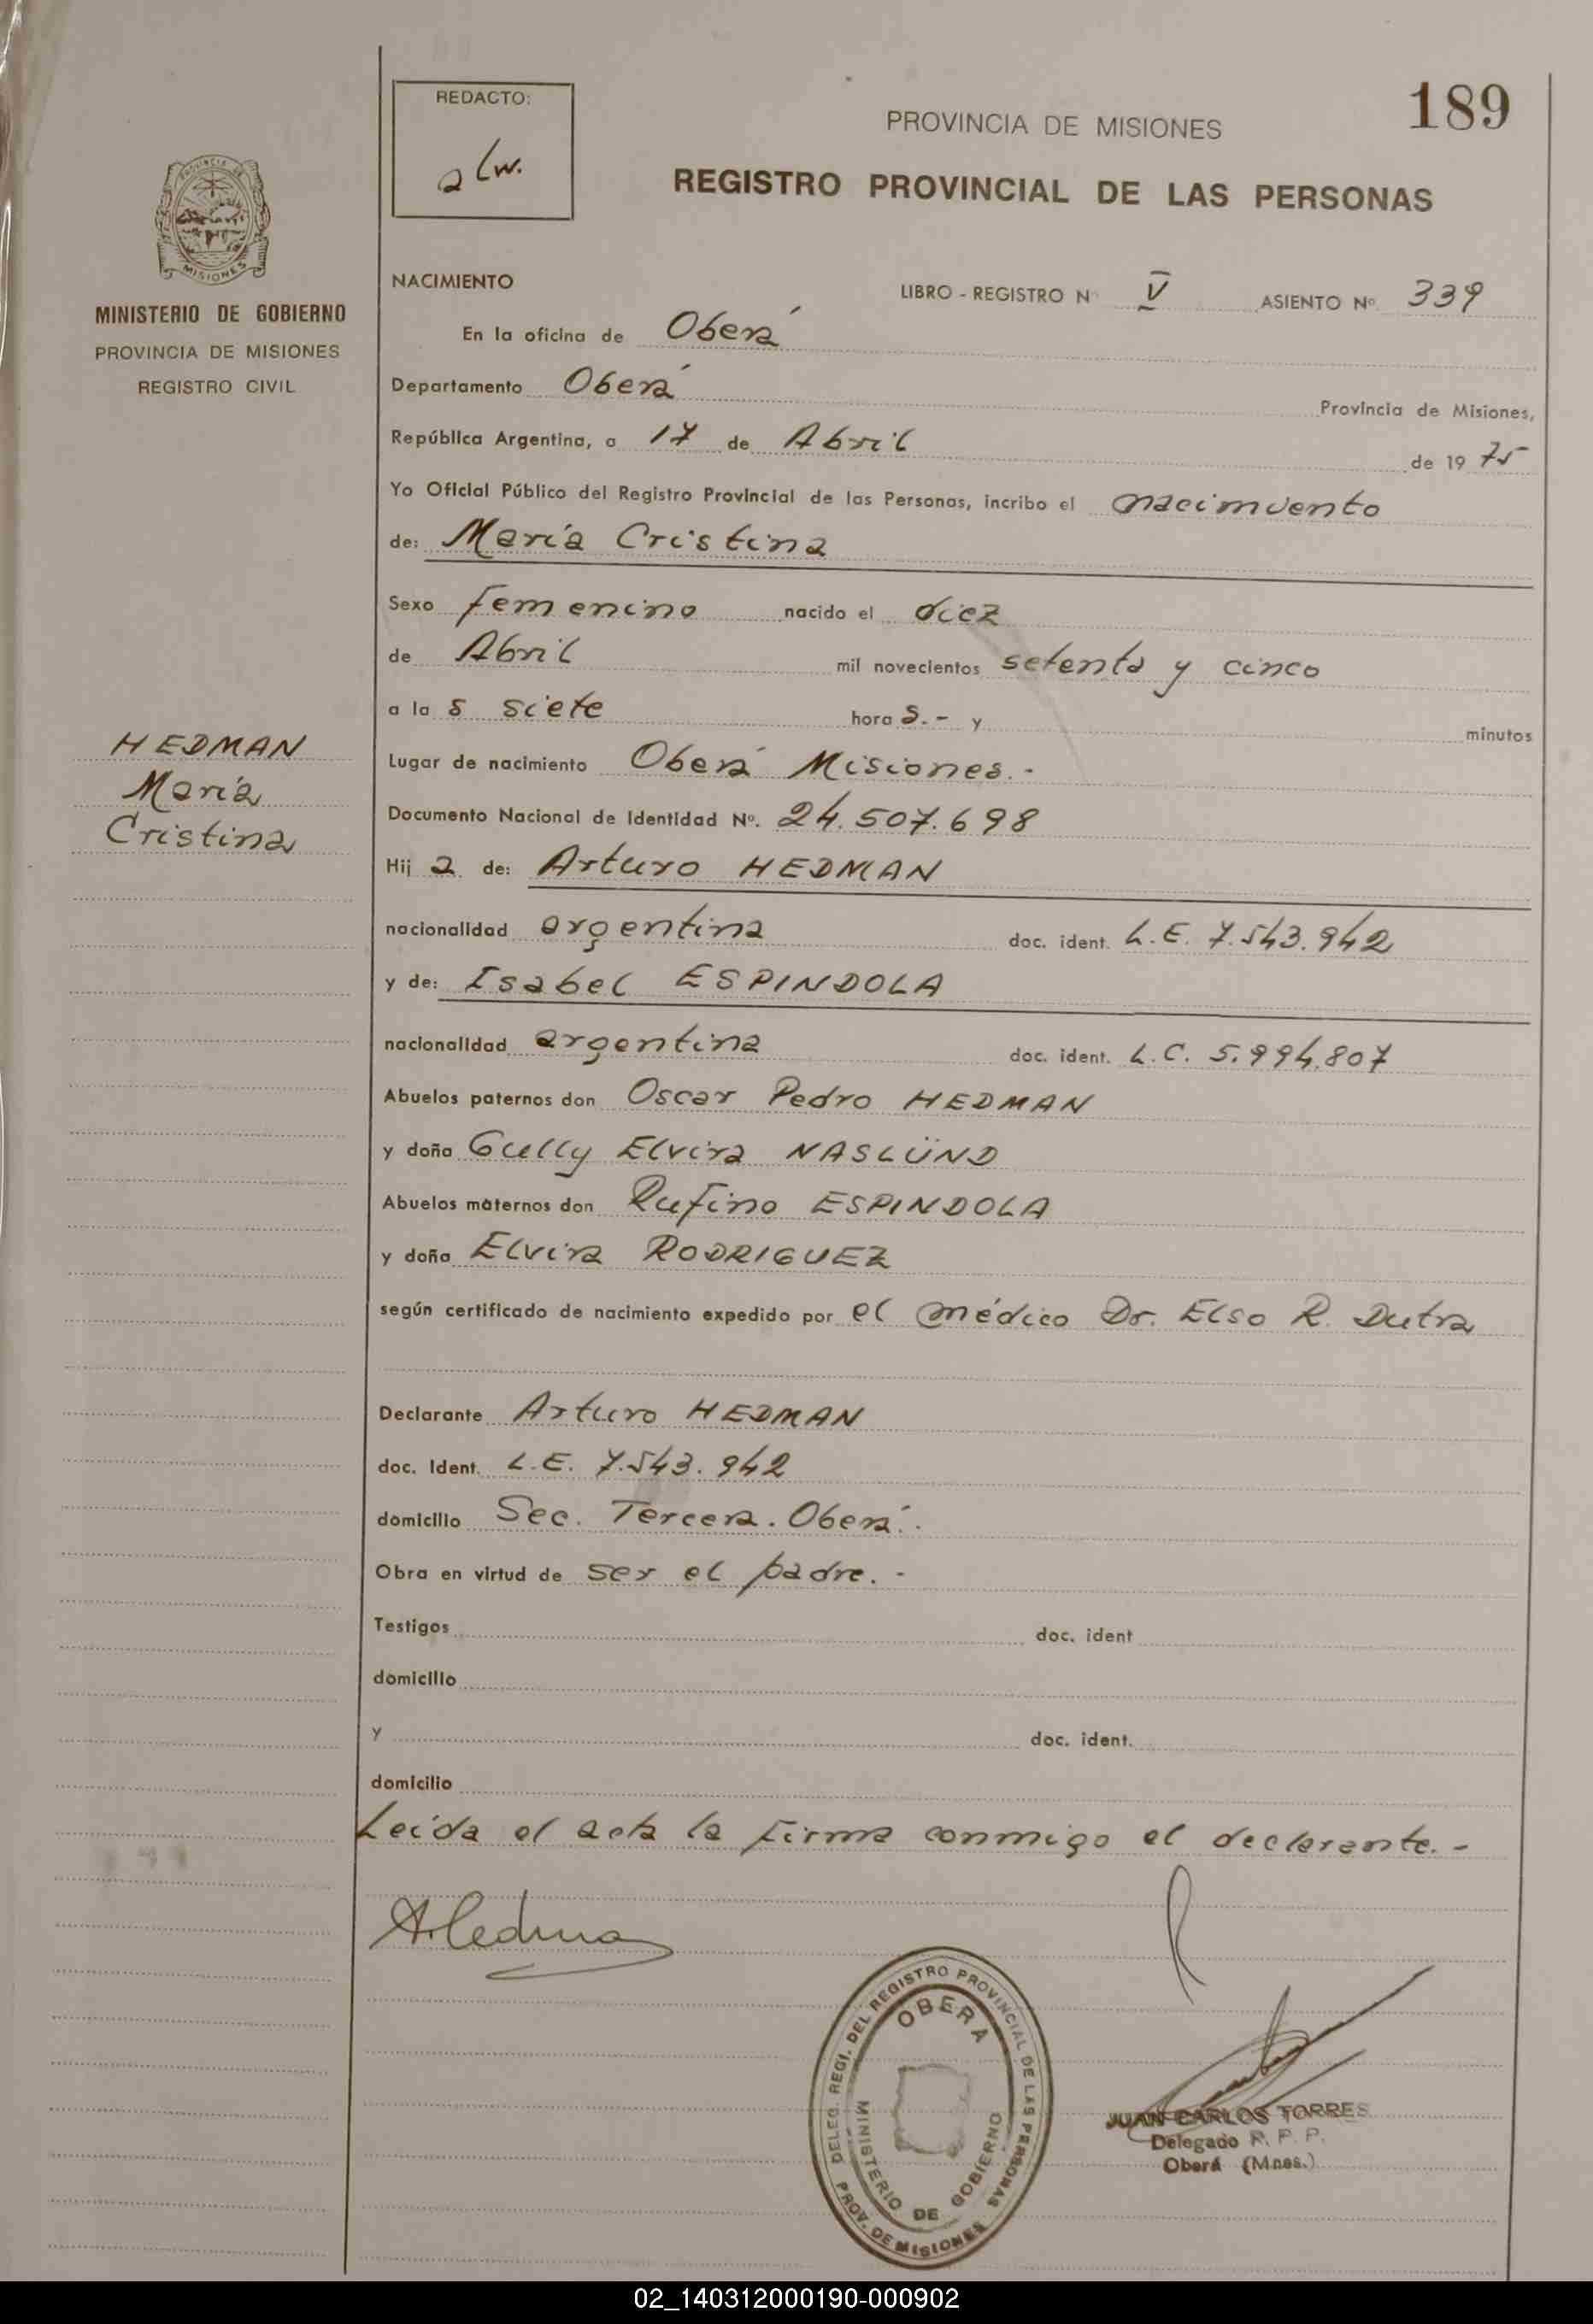 189
REDACTO:
alw.
PROVINCIA DE MISIONES
REGISTRO PROVINCIAL DE LAS PERSONAS
MISIONES
MINISTERIO DE GOBIERNO
PROVINCIA DE MISIONES
REGISTRO CIVIL
HEDMAN
María
Cristina
NACIMIENTO
LIBRO - REGISTRO Nº V ASIENTO Nº 339
En la oficina de Oberá
Departamento Oberá Provincia de Misiones,
República Argentina, a 17 de Abril de 1975
Yo Oficial Público del Registro Provincial de las Personas, incribo el nacimiento
de: María Cristina
Sexo femenino nacido el diez
de Abril mil novecientos setenta y cinco
a la s siete hora s.- y minutos
Lugar de nacimiento Oberá Misiones.-
Documento Nacional de Identidad Nº. 24.507.698
Hij a de: Arturo HEDMAN
nacionalidad argentina doc. ident. L.E. 7.543.942
y de: Isabel ESPINDOLA
nacionalidad argentina doc. ident. L.C. 5.994.807
Abuelos paternos don Oscar Pedro HEDMAN
y doña Gully Elvira NASLÜND
Abuelos maternos don Rufino ESPINDOLA
y doña Elvira RODRIGUEZ
según certificado de nacimiento expedido por el médico Dr. Elso R. Dutra
Declarante Arturo HEDMAN
doc. Ident. L.E. 7.543.942
domicilio Sec. Tercera. Oberá.
Obra en virtud de ser el padre.-
Testigos doc. ident
domicilio
y doc. ident.
domicilio
Leída el acta la firma conmigo el declarante.-
DELEG. REGI. DEL REGISTRO PROVINCIAL DE LAS PERSONAS
PROV. DE MISIONES
OBERA
MINISTERIO DE GOBIERNO
JUAN CARLOS TORRES
Delegado R. P. P.
Oberá (Mnes.)
02_140312000190-000902